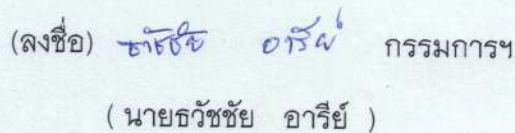 (ลงชื่อ) ธวัชชัย อารีย์ กรรมการฯ
( นายธวัชชัย อารีย์ )